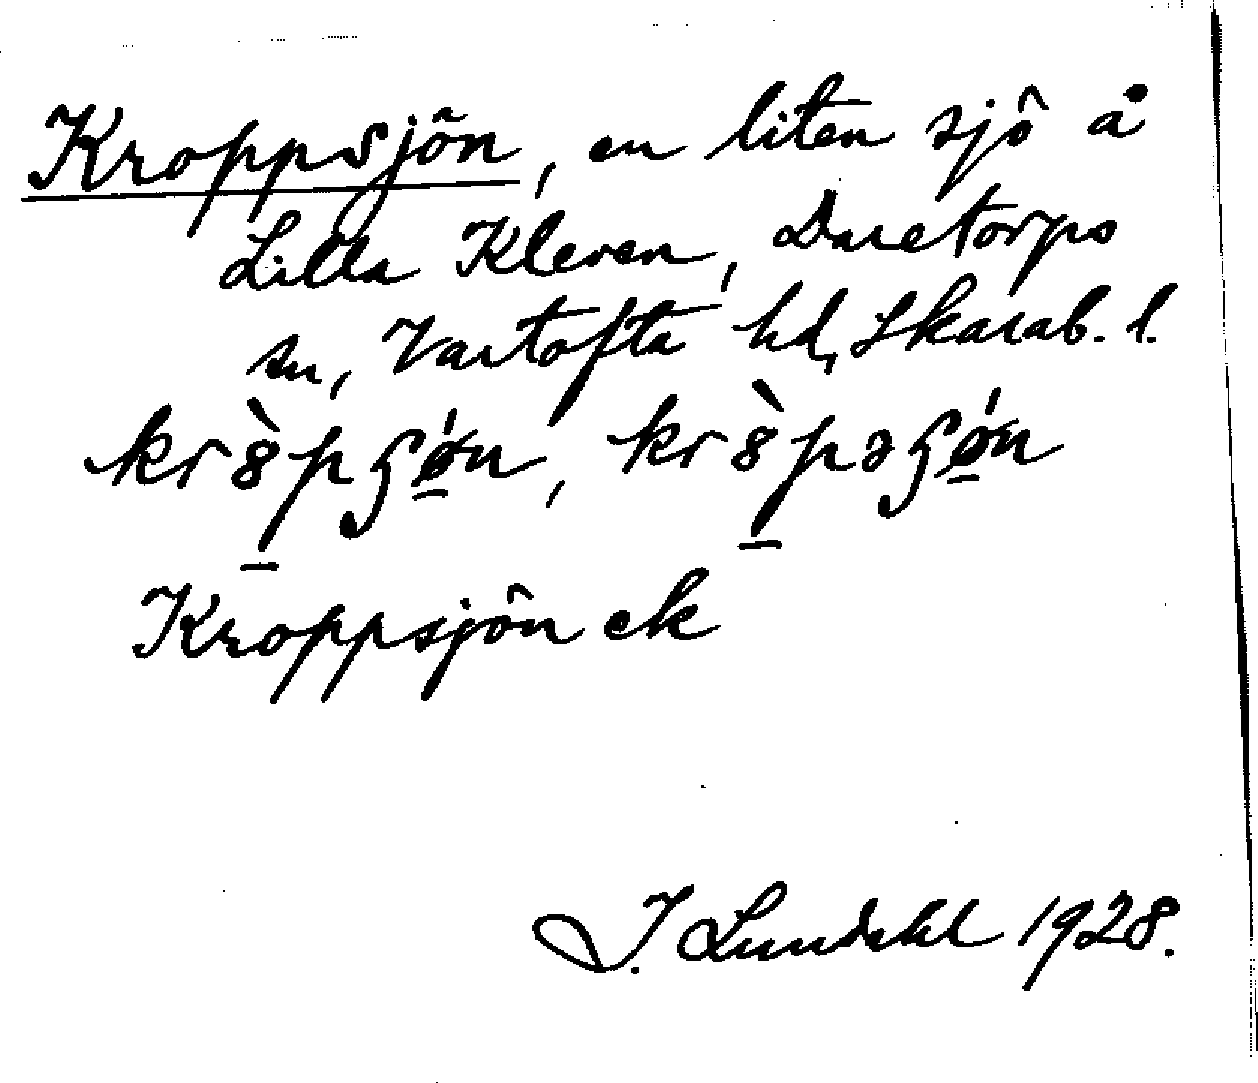 Kroppsjön, en liten sjö å
Lilla Kleven, Daretorps
sn, Vartofta hd, Skarab. l.
kr8̀pʂǿn, kr8̀pəʂǿn
Kroppsjön ek
I. Lundahl 1928.